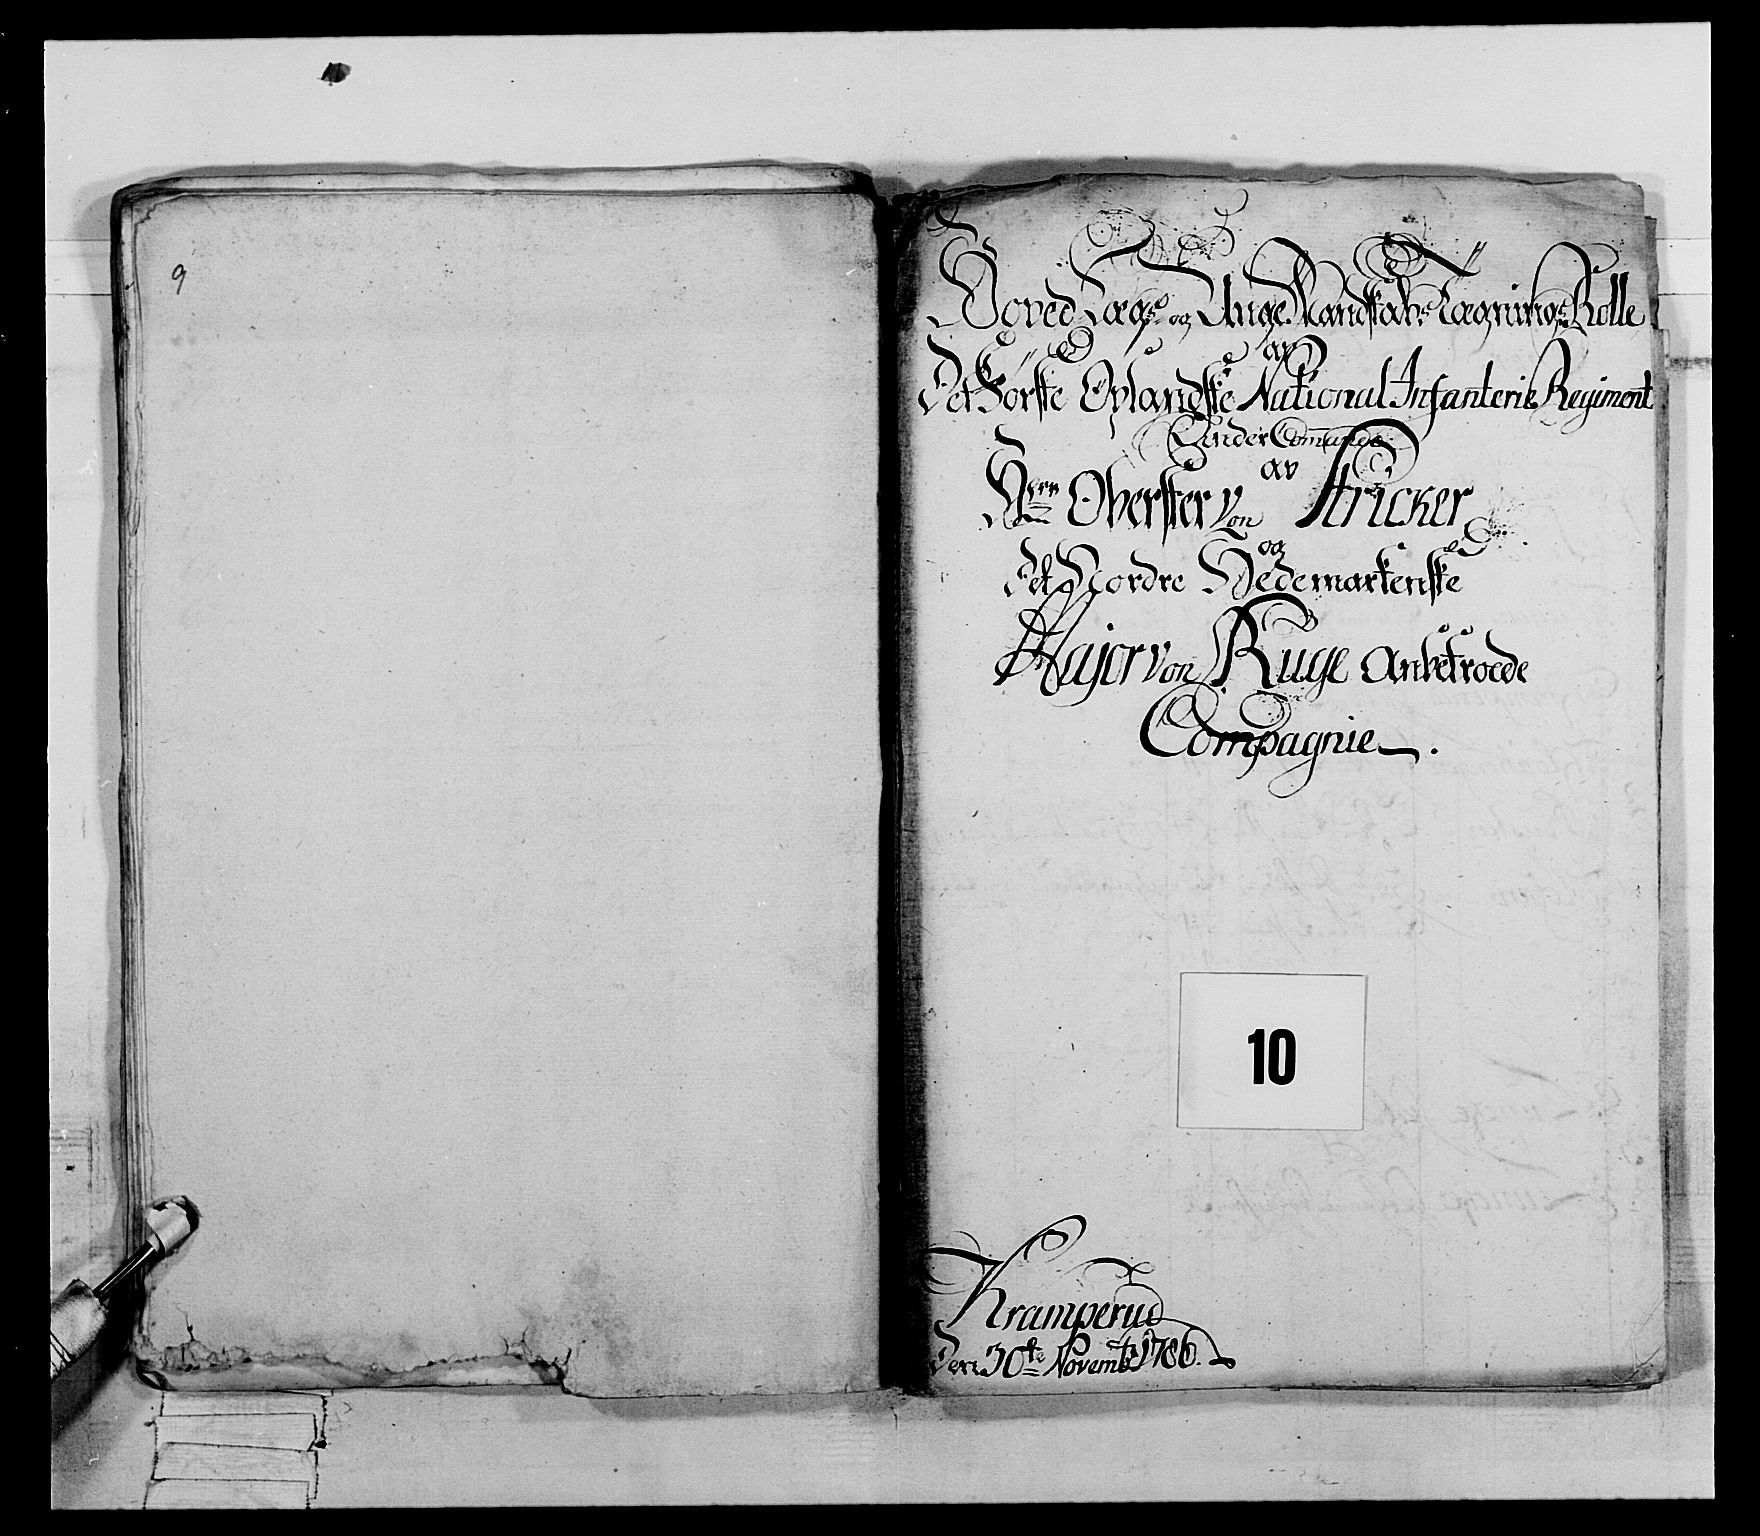 9
Hoved Lægs og Unge Mandskabs Lægnings Rolle
av
Det Første Oplandske National Infanterie Regiment
Under Comando
av
Herr Oberster Von Stricker
og
Det Nordre Hedemarkenske
Major von Ruge Anbetroede
Compagnie.
10
Kramperud
Den 30te Novembr 1786.